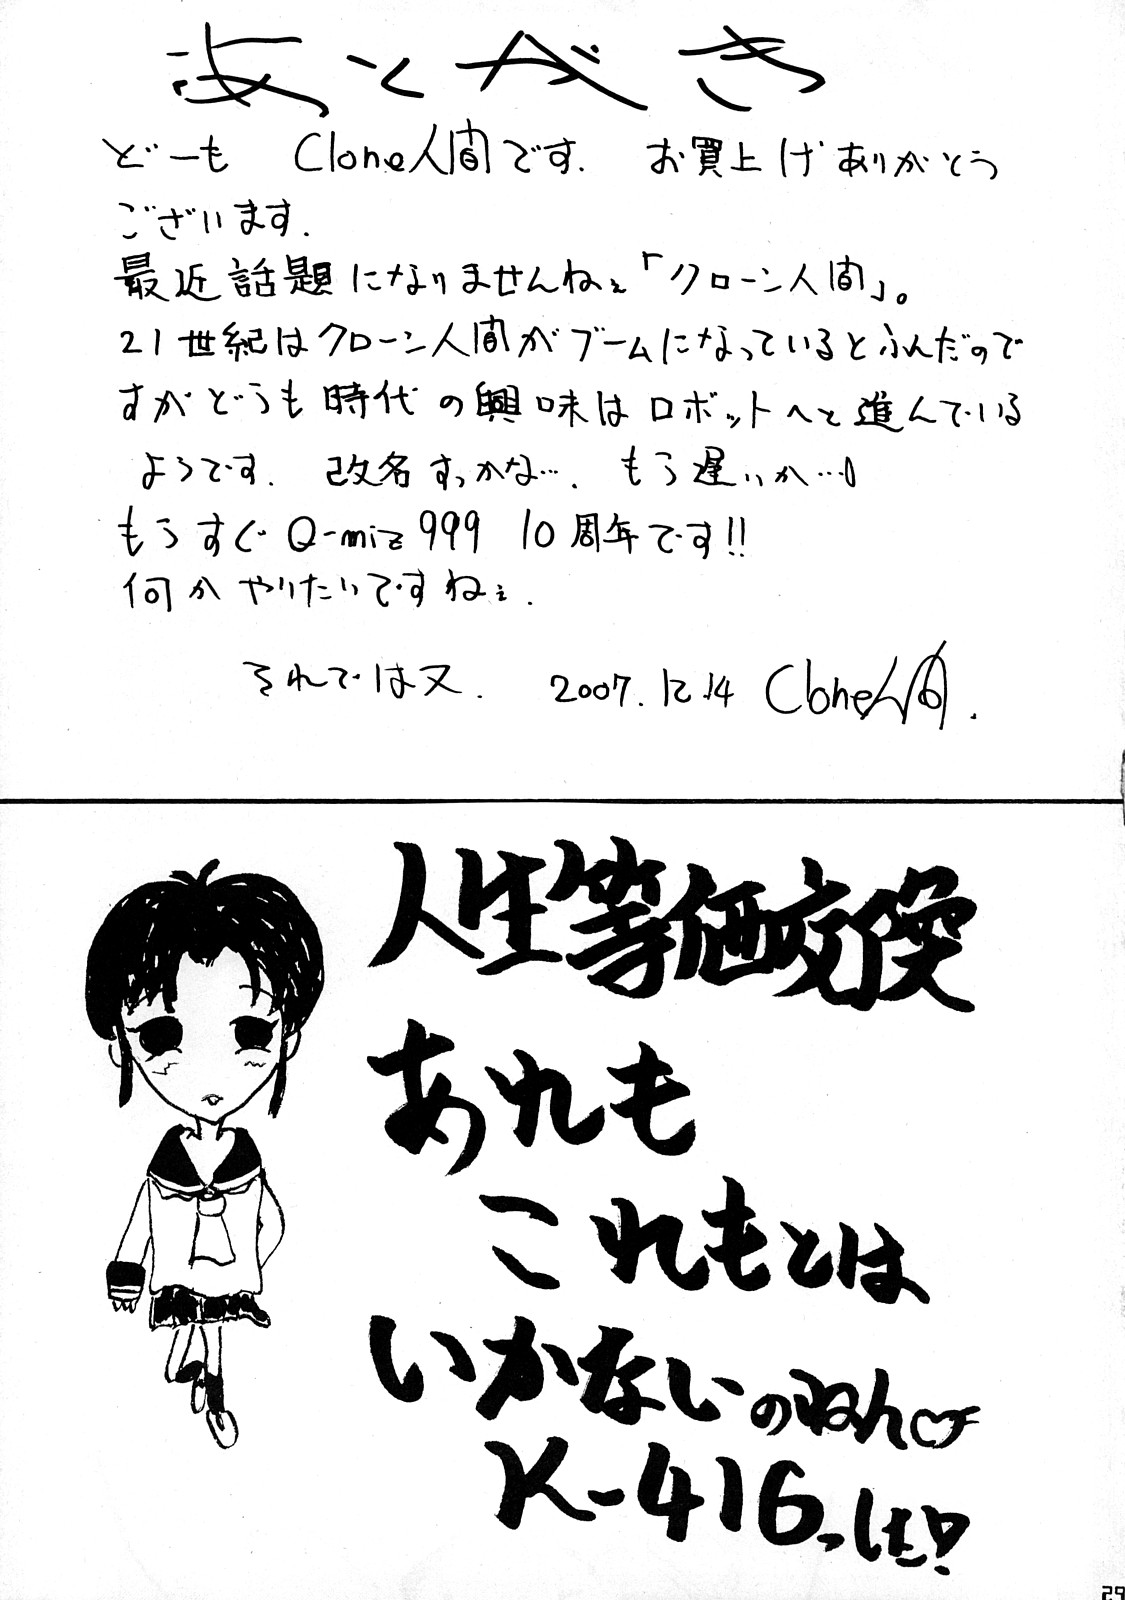 あとがき
どーも Clone人間です. お買上げありがとう
ございます.
最近話題になりませんねぇ「クローン人間」。
21世紀はクローン人間がブームになっているとふんだので
すがどうも時代の興味はロボットへと進んでいる
ようです. 改名すっかな…. もう遅いか…
もうすぐ Q-miz 999 10周年です!!
何かやりたいですねぇ.
それでは又. 2007.12.14 Clone人間.
人生等価交換
あれも
これもとは
いかないのねん♡
K-416っす!
29